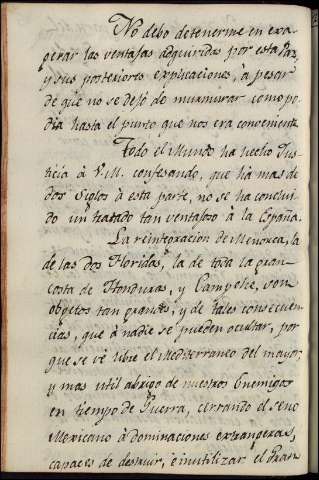 No debo detenerme en exa-
gerar las ventajas adquiridas por esta Paz,
y sus posteriores explicaciones, à pesar
de que no se dejó de murmurar como po-
dia hasta el punto que nos era conveniente.
Todo el Mundo ha hecho Jus-
ticia à V. M. confesando, que ha mas de
dos siglos à esta parte, no se ha conclui-
do un tratado tan ventajoso à la España.
La reintegracion de Menorca, la
de las dos Floridas, la de toda la gran
costa de Honduras, y Campeche, son
objetos tan grandes, y de tales consecuen-
cias, que à nadie se pueden ocultar, por
que se vé libre el Mediterraneo del mayor,
y mas util abrigo de nuestros Enemigos
en tiempo de Guerra, cerrando el seno
Mexicano à dominaciones extrangeras,
capaces de destruir, è inutilizar el Gran